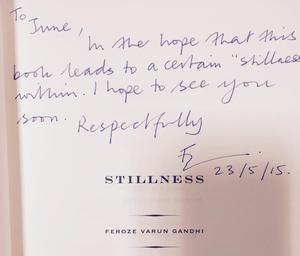 To
June,
In the hope that this
book leads to a certain "stillness
within. I hope to see you
soon. Respectfully
FZ
STILLNESS
23/5/15.
FEROZE VARUN GANDHI